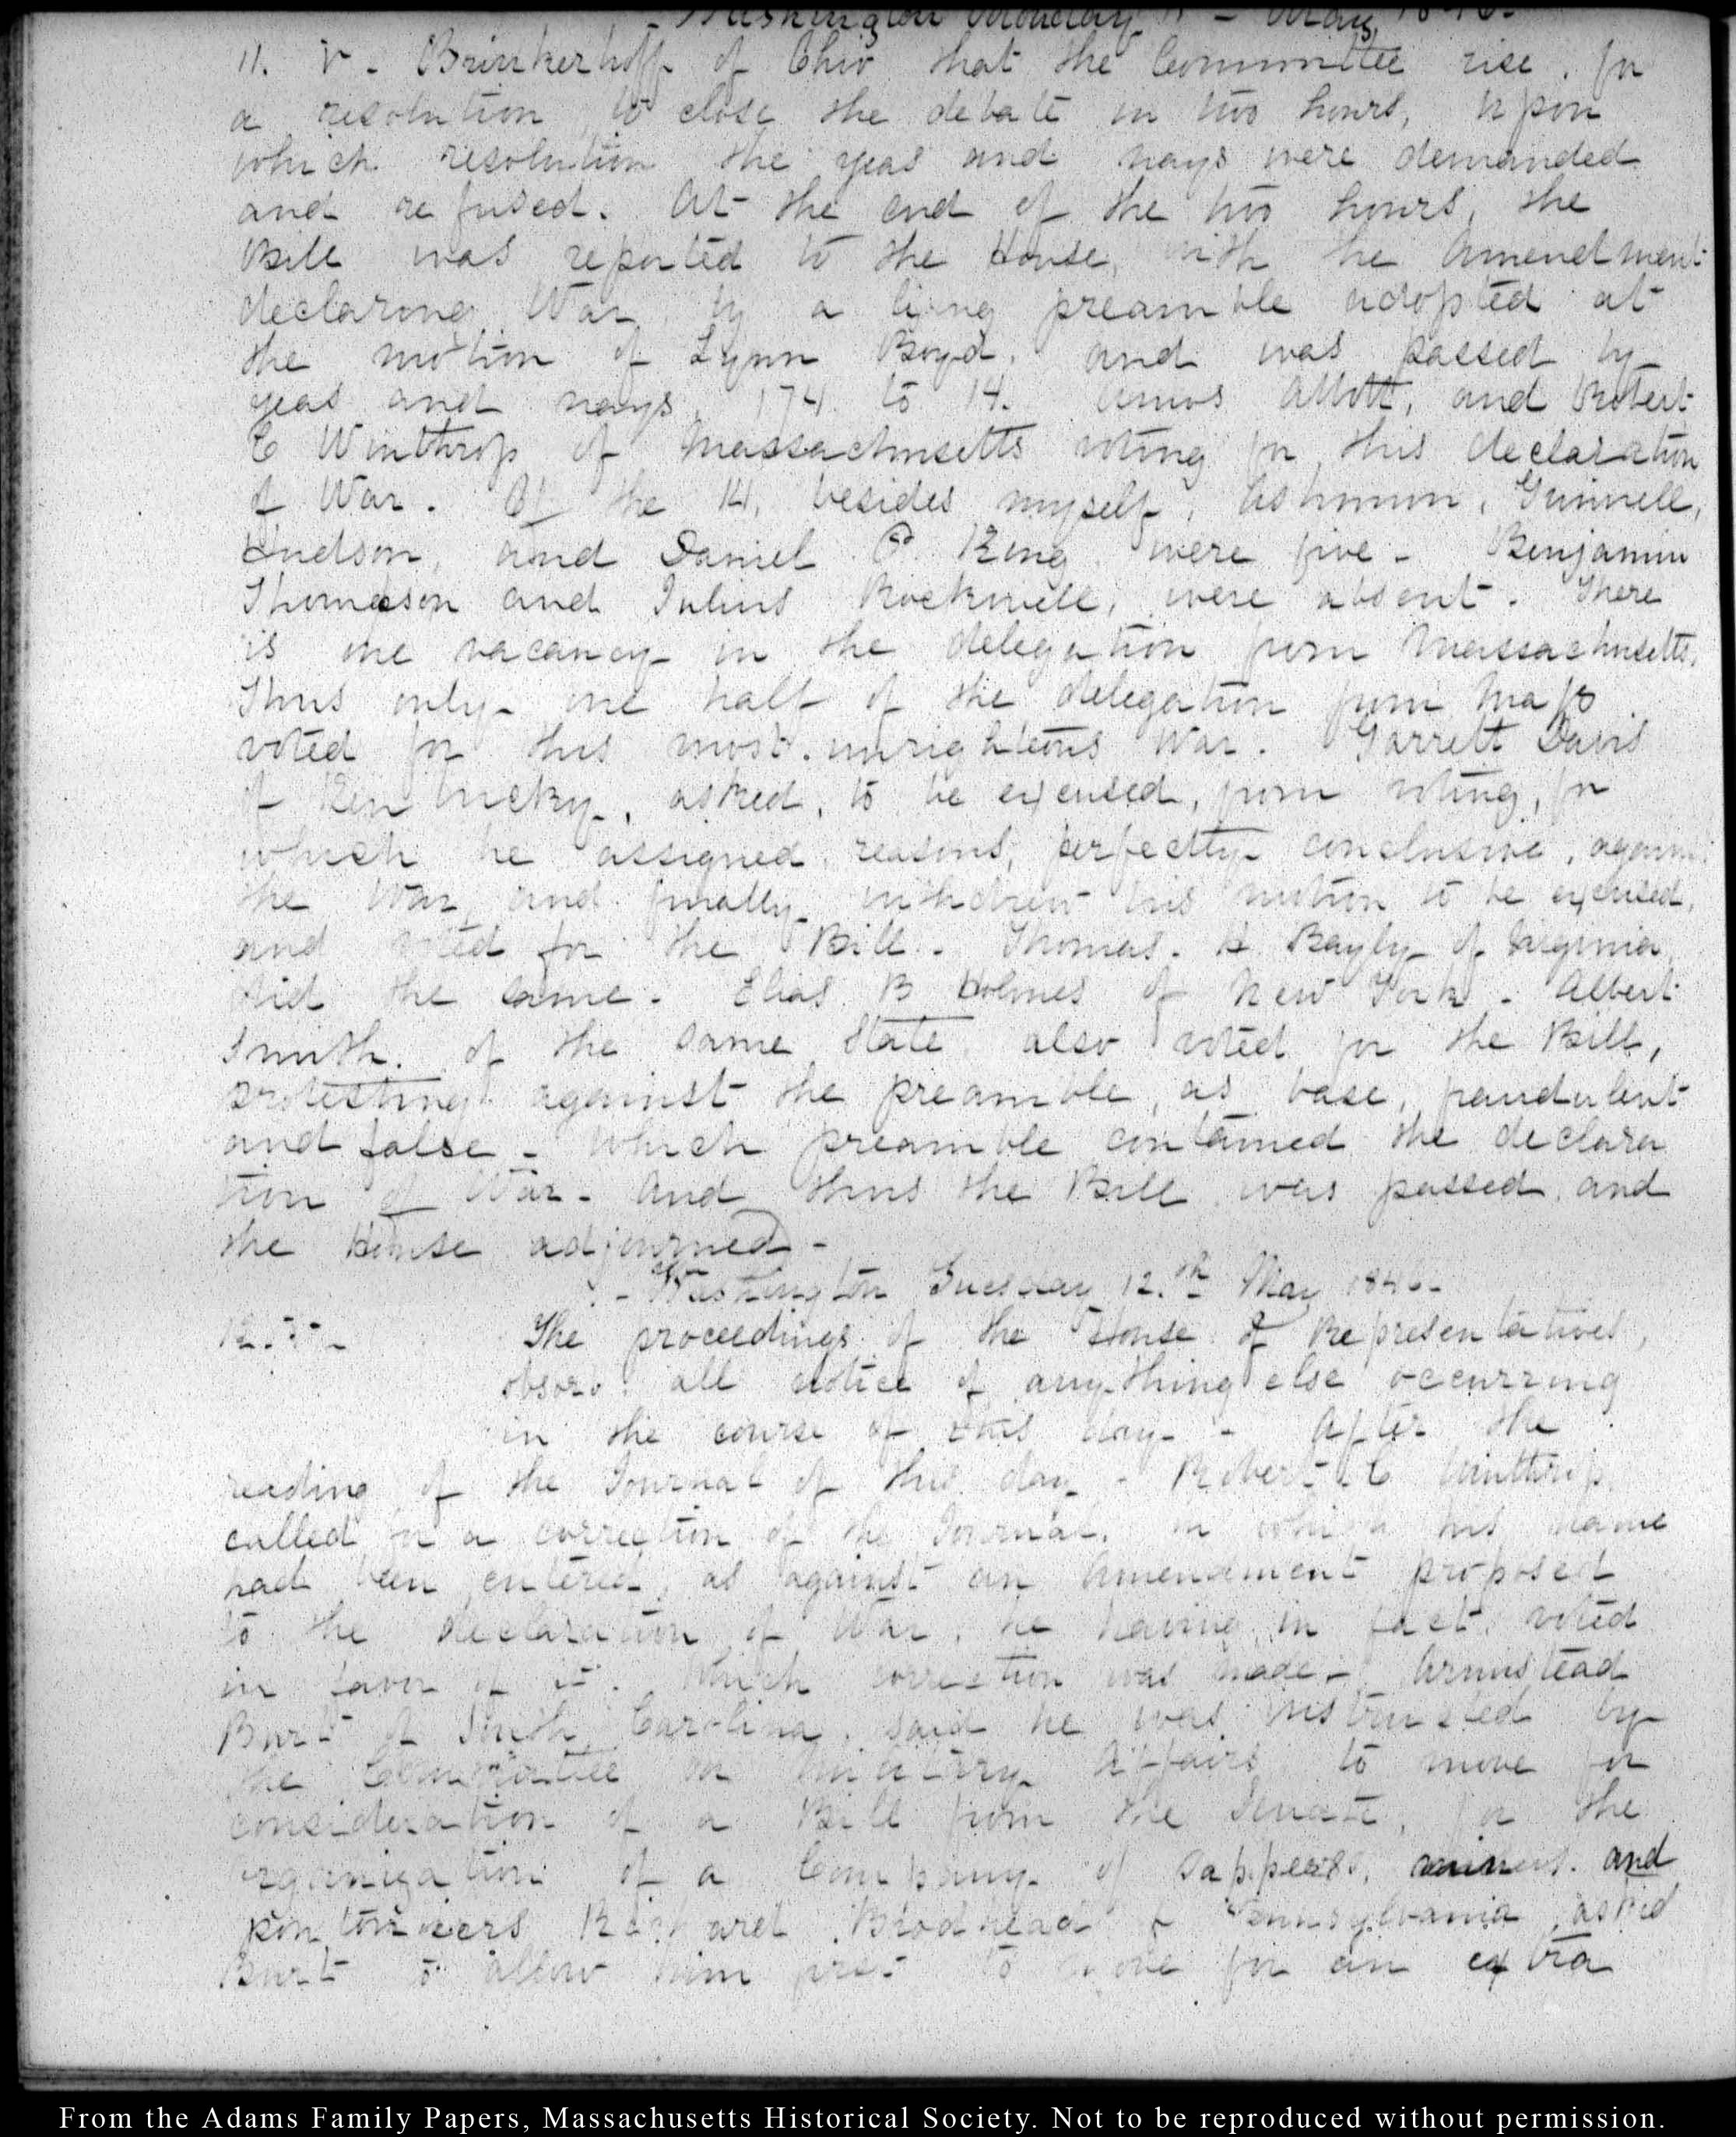 - Washington Monday 11 - May 1846 -
11. V - Brinkerhoff of Ohio that the Committee rise, for
a resolution to close the debate in two hours, upon
which resolution the yeas and nays were demanded
and refused. At the end of the two hours, the
Bill was reported to the House, with the amendment
declaring War by a lying preamble adopted at
the motion of Lynn Boyd, and was passed by
yeas and nays, 174 to 14. Amos Abbott, and Robert
C Winthrop of Massachusetts voting for this declaration
of War. Of the 14, besides myself, Ashmun, Grinnell,
Hudson, and Daniel P. King were five - Benjamin
Thompson and Julius Rockwell, were absent. There
is one vacancy in the delegation from Massachusetts.
Thus only one half of the delegation from Mass
voted for this most unrighteous War. Garrett Davis
of Kentucky, asked, to be excused, from voting, for
which he assigned reasons, perfectly conclusive, against
the War, and finally withdrew his motion to be excused,
and voted for the Bill. Thomas. H Bayly of Virginia
did the same. Elias B Holmes of New York - Albert
Smith. of the same State also voted for the Bill,
protesting against the preamble, as base, fraudulent
and false - which preamble contained the declara
tion of War - And thus the Bill was passed, and
the House adjourned -
- Washington Tuesday 12.th May 1846 -
12. The proceedings of the House of Representatives,
absorb all notice of anything else occurring
in the course of this day - After the
reading of the Journal of this day - Robert C Winthrop
called for a correction of the Journal, in which his name
had been entered, as against an amendment proposed
to the declaration of War, he having in fact, voted
in favor of it. Which correction was made - Armistead
Burt of South Carolina, said he was instructed by
the Committee on Military Affairs, to move for
consideration of a Bill from the Senate, for the
organization of a Company of sappers, miners. and
pontoniers Richard Brodhead of Pennsylvania, asked
Burt to allow him first to move for an extra
From the Adams Family Papers, Massachusetts Historical Society. Not to be reproduced without permission.